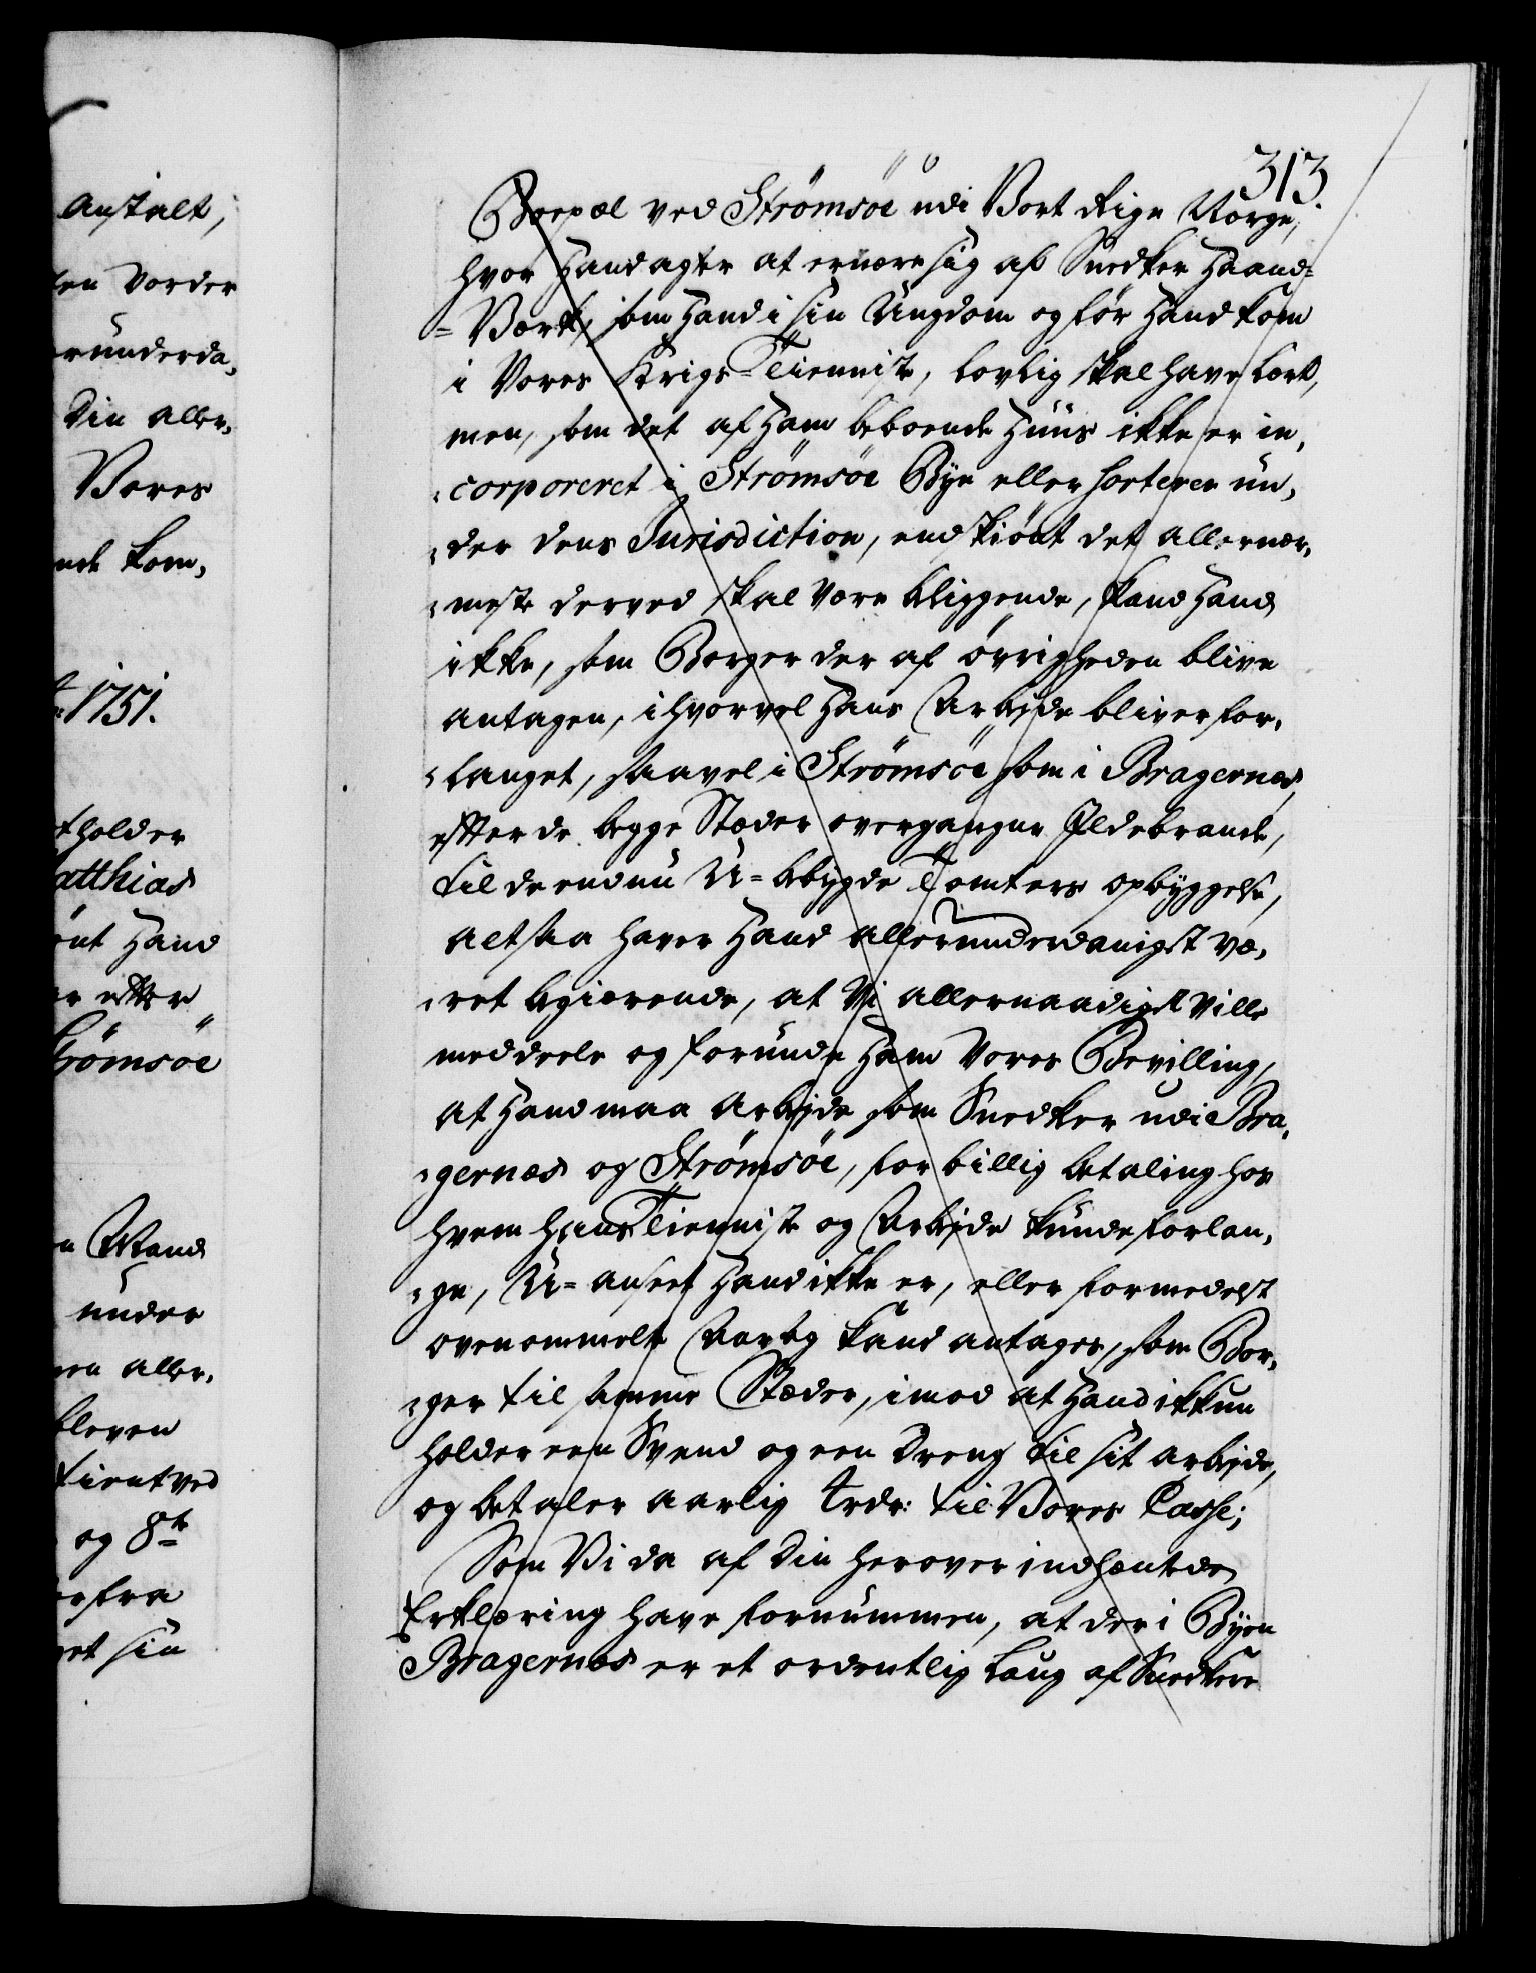 Anstalt,
ten vorder
erunderda,
Din aller,
Vores
nde kom,
1751.
tholder
atthias
ent Hand
er efter
Strömsöe
Mand
under
nen aller,
bleven
tientved
og 8te
erfra
get sin
313.
Boepæl ved Strömsöe udi Vort Rige Norge,
hvor Hand agter at ernære sig af Snedker Haand=
=Værk, som Hand i sin Ungdom og før Hand kom
i Vores Krigs=Tienniste, lovlig skal have lært,
men, som det af Ham beboende Huus ikke er in,
corporeret i Strömsöe Bye eller sorterer un,
der dens Jurisdiction, endskiönt det allernær,
meste derved skal være beliggende, kand Hand
ikke, som Borger der af övrigheden blive
antagen, ihvorvel Hans Arbejde bliver for,
langet, saavel i Strömsöe som i Bragernæs,
efter de begge Stæder overgangne Ildebrande,
til de endnu U=bebygde Tomters opbyggelse,
altsaa haver Hand allerunderdanigst væ,
ret begiærende, at Vi allernaadigst ville
meddeele og forunde Ham Vores Bevilling,
at Hand maa arbejde som Snedker udi Bra,
gernæs og Strömsöe, for billig betaling hos
hvem hans Tienniste og Arbejde kunde forlan,
ge, U=anseet Hand ikke er, eller formedelst
ovenommelte Aarsag kand antages, som Bor,
ger til samme Stæder, imod at Hand ikkun
holder een Svend og een Dreng til sit arbejde,
og betaler aarlig 4 rdr: til Vores Casse;
Som Vi da af Din herover indhæntede
Erklæring have fornummen, at der i Byen
Bragernæs er et ordentlig Laug af Snedkere